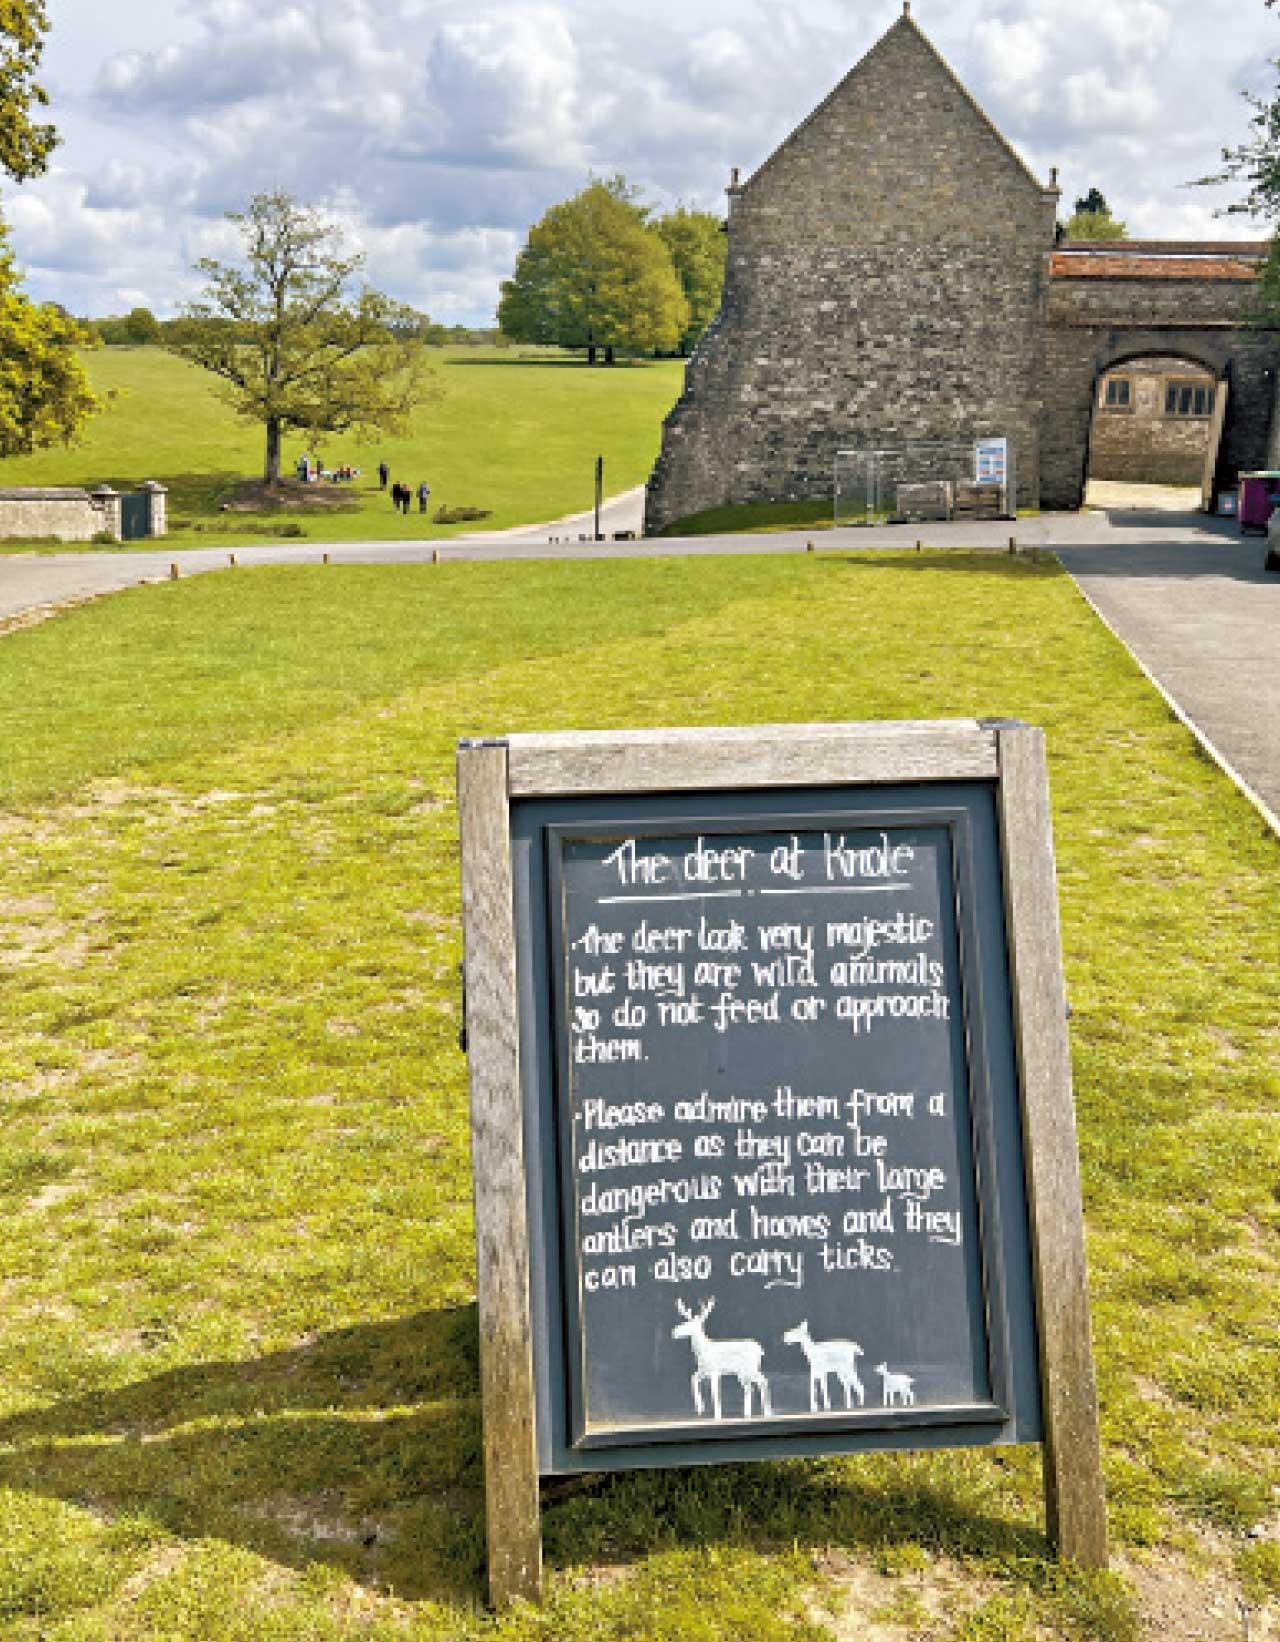 The deer at Knole
·The deer look very majestic
but they are wild animals
so do not feed or approach
them.
·Please admire them from a
distance as they can be
dangerous with their large
antlers and hooves and they
can also carry ticks.